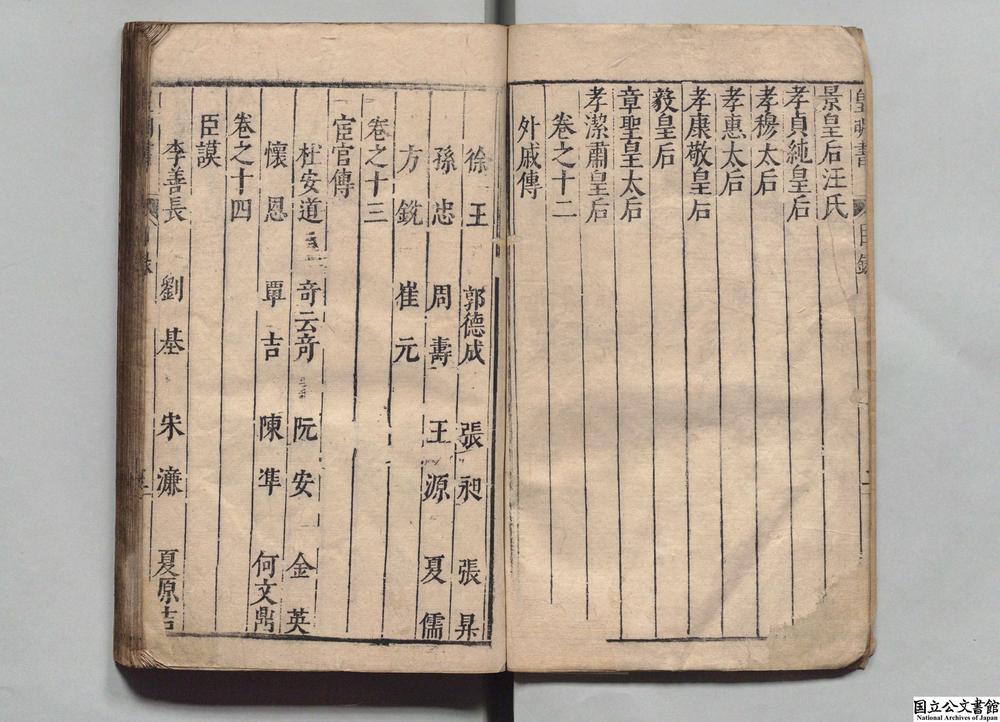 景皇后汪氏
孝貞純皇后
孝穆太后
孝惠太后
孝康敬皇后
毅皇后
章聖皇太后
孝潔肅皇后
卷之十二
外戚傳
徐王 郭德成 張昶 張昇
孫忠 周壽 王源 夏儒
方銳 崔元
卷之十三
宦官傳
杜安道 奇云奇 阮安 金英
懷恩 覃吉 陳準 何文鼎
卷之十四
臣謨
李善長 劉基 宋濂 夏原吉
国立公文書館
National Archives of Japan